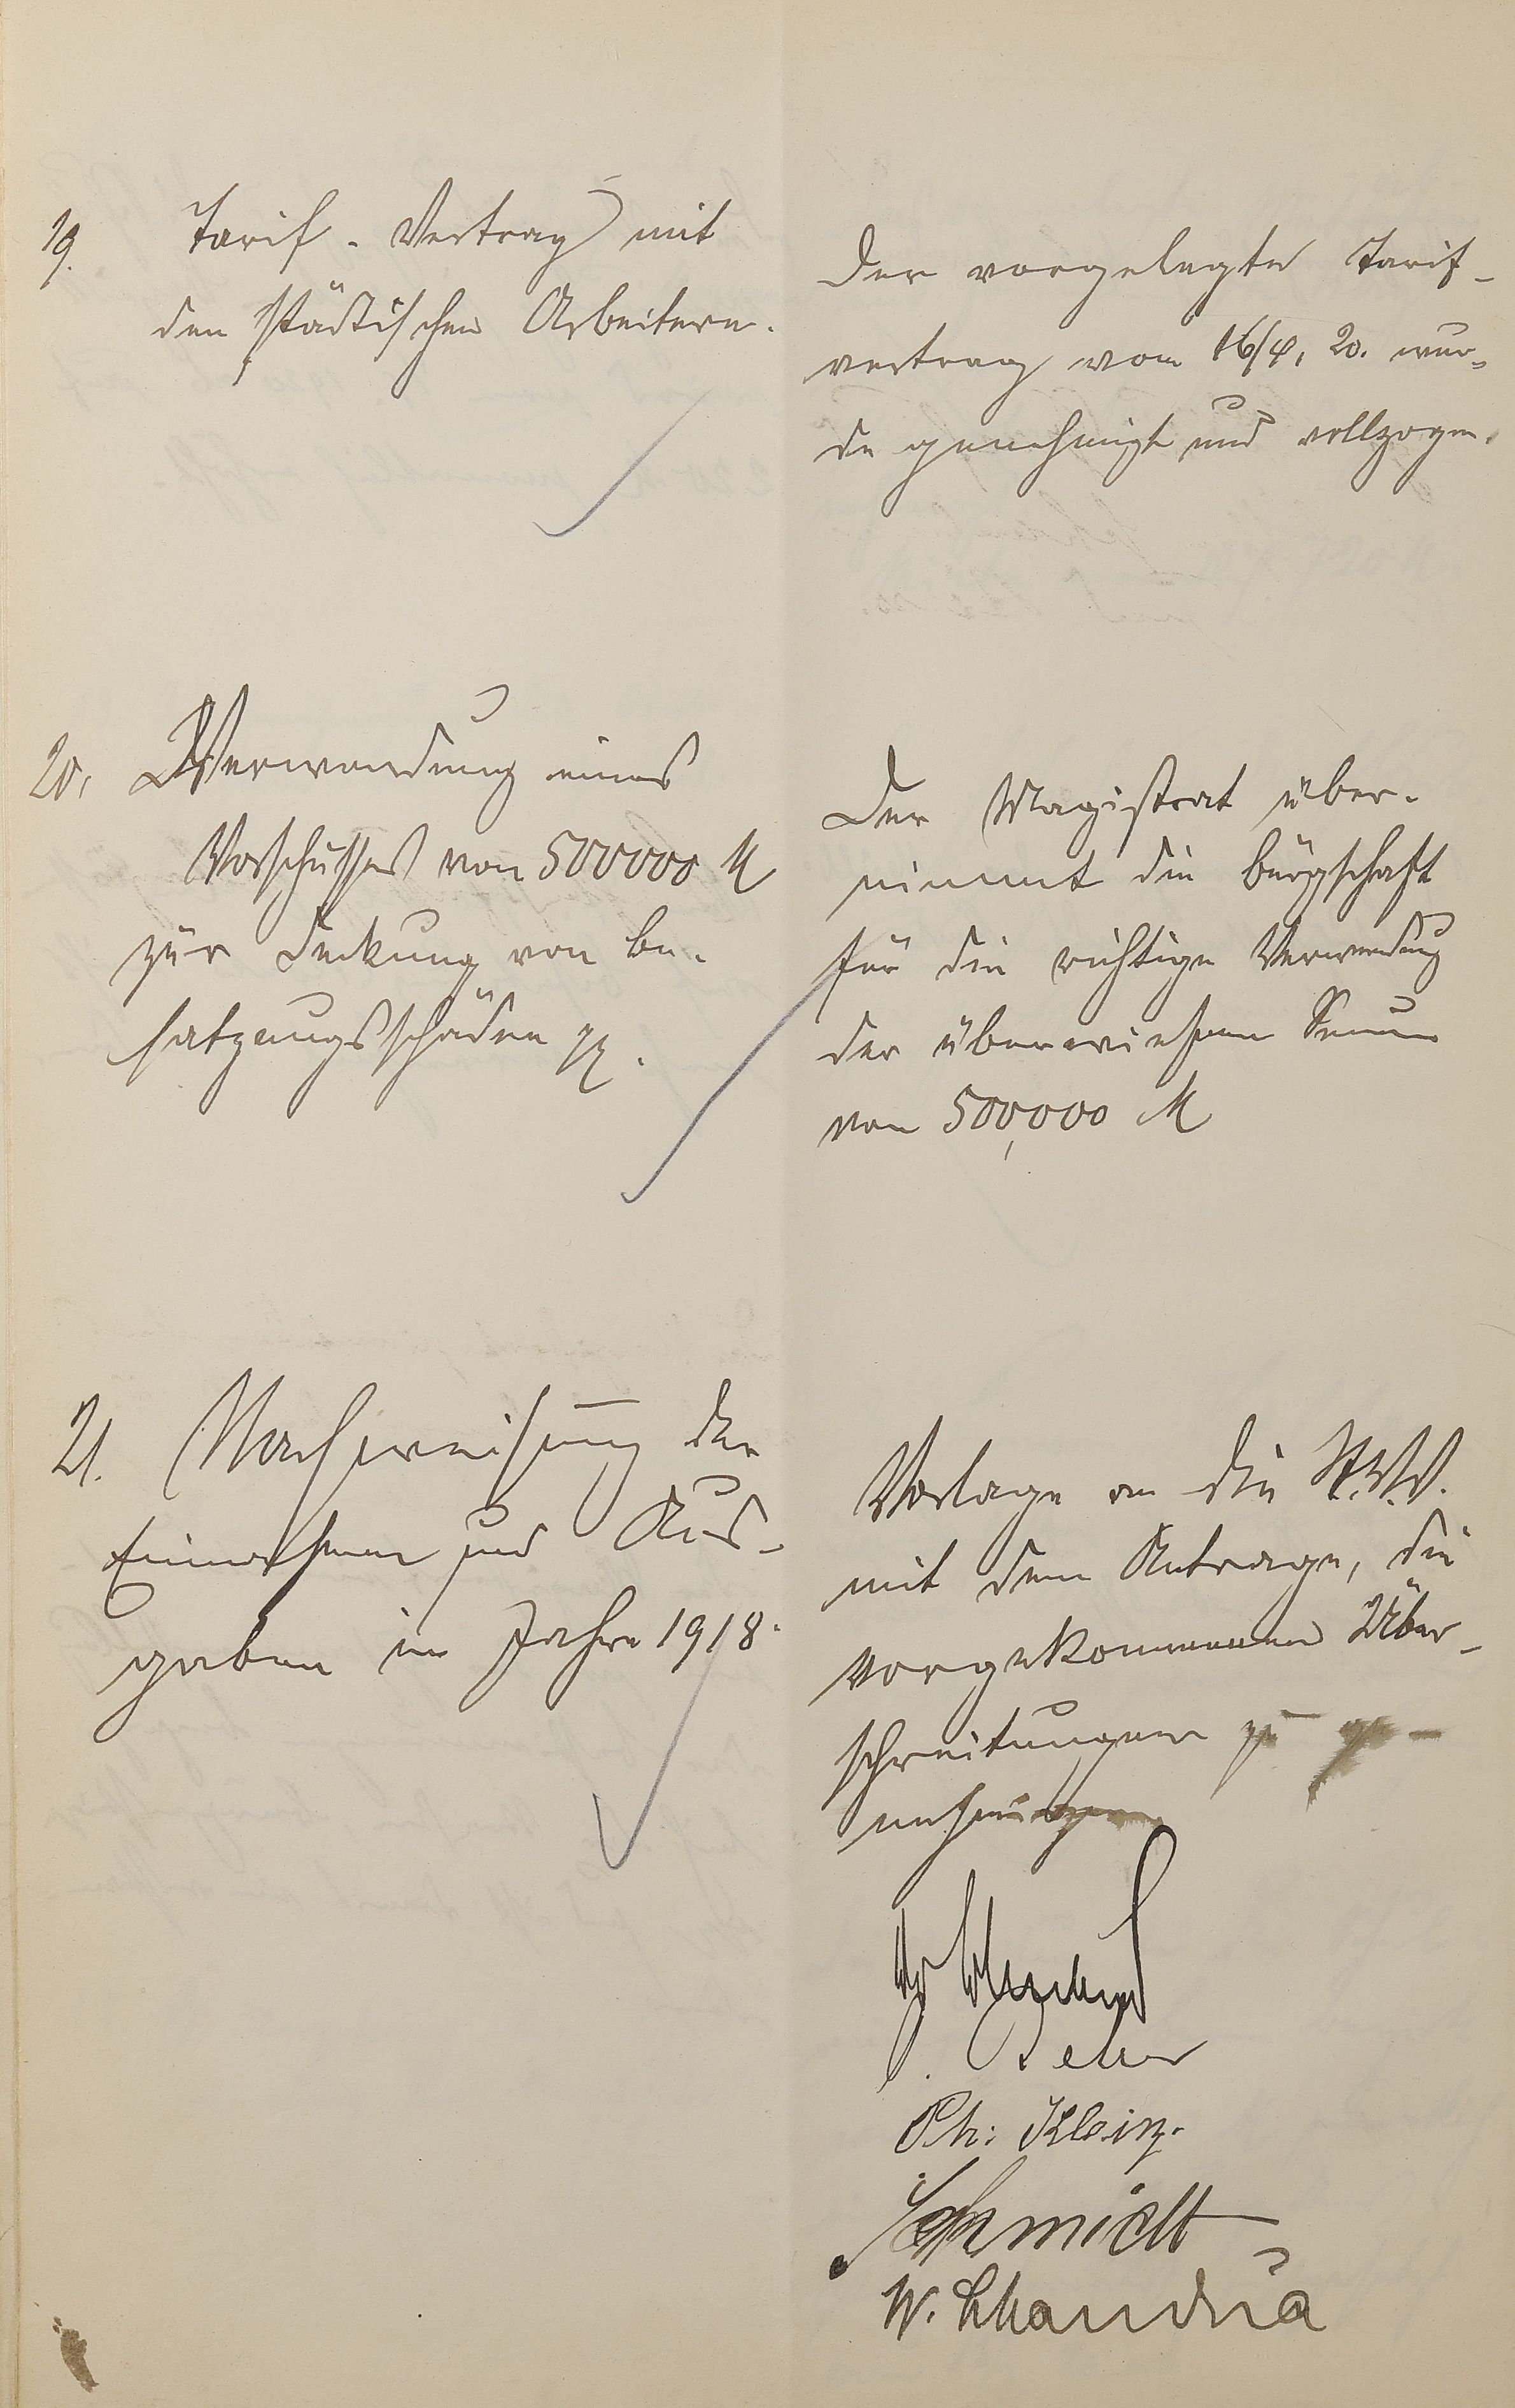 19.
Tarif-Vertrag mit
den städtischen Arbeitern.
Der vorgelegte Tarif-
vertrag vom 16/4, 20. wur-
de genehmigt und vollzogen.
20,
Verwendung eines
Vorschusses von 500000 M
zur Deckung von Be-
satzungsschäden
Der Magistrat über-
nimmt die Bürgschaft
für die richtige Verwendung
der überwiesenen Summe
von 500,000 M
21.
Nachweisung der
Einnahmen und Aus-
gaben im Jahre 1918.
Vorlage an die St.V.V.
mit dem Antrage, die
vorgekommenen Über-
schreitungen zu ge-
nehmigen
Ph: Klein.
Schmidt
W.